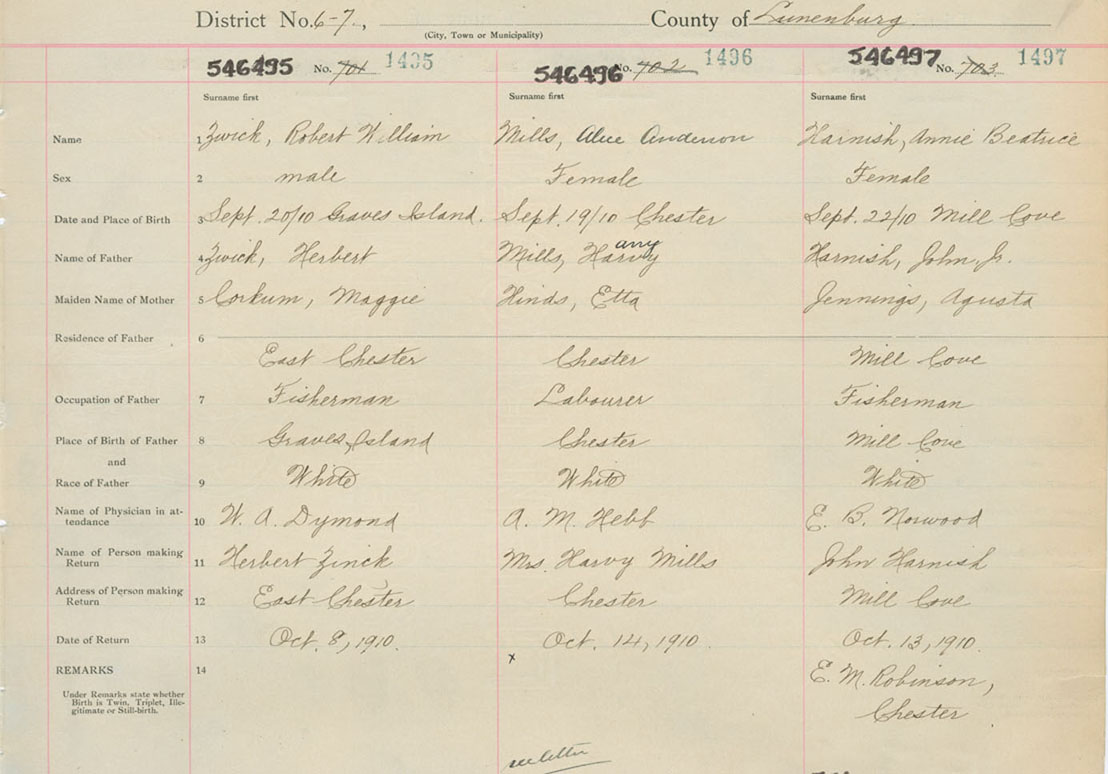 District No. 6-7, County of Lunenburg
(City, Town or Municipality)
546495 No. 701 1495 546496 No. 702 1496 546497 No. 703 1497
Surname first Surname first Surname first
Name 1 Zwick, Robert William Mills, Alice Anderson Harnish, Annie Beatrice
Sex 2 male Female Female
Date and Place of Birth 3 Sept. 20/10 Graves Island. Sept. 19/10 Chester Sept. 22/10 Mill Cove
any
Name of Father 4 Zwick, Herbert Mills, Harvy Harnish, John, Jr.
Maiden Name of Mother 5 Corkum, Maggie Hinds, Etta Jennings, Agusta
Residence of Father 6
East Chester Chester Mill Cove
Occupation of Father 7 Fisherman Labourer Fisherman
Place of Birth of Father 8 Graves Island Chester Mill Cove
and
Race of Father 9 White White White
Name of Physician in at- 
tendance 10 W. A. Dymond A. M. Hebb E. B. Norwood
Name of Person making
Return 11 Herbert Zinck Mrs. Harvy Mills John Harnish
Address of Person making
Return 12 East Chester Chester Mill Cove
Date of Return 13 Oct. 8, 1910. Oct. 14, 1910 Oct. 13, 1910
x
REMARKS 14 E. M. Robinson,
Under Remarks state whether
Birth is Twin, Triplet, Ille-
gitimate or Still-birth.
Chester
see letter